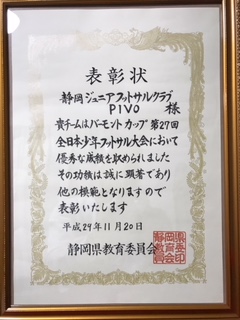 表彰状
静岡ジュニアフットサルクラブ
PIVO 様
貴チームはバーモントカップ第27回
全日本少年フットサル大会において
優秀な成績を収められました
その功績は誠に顕著であり
他の模範となりますので
表彰いたします
平成29年11月20日
静岡県教育委員会